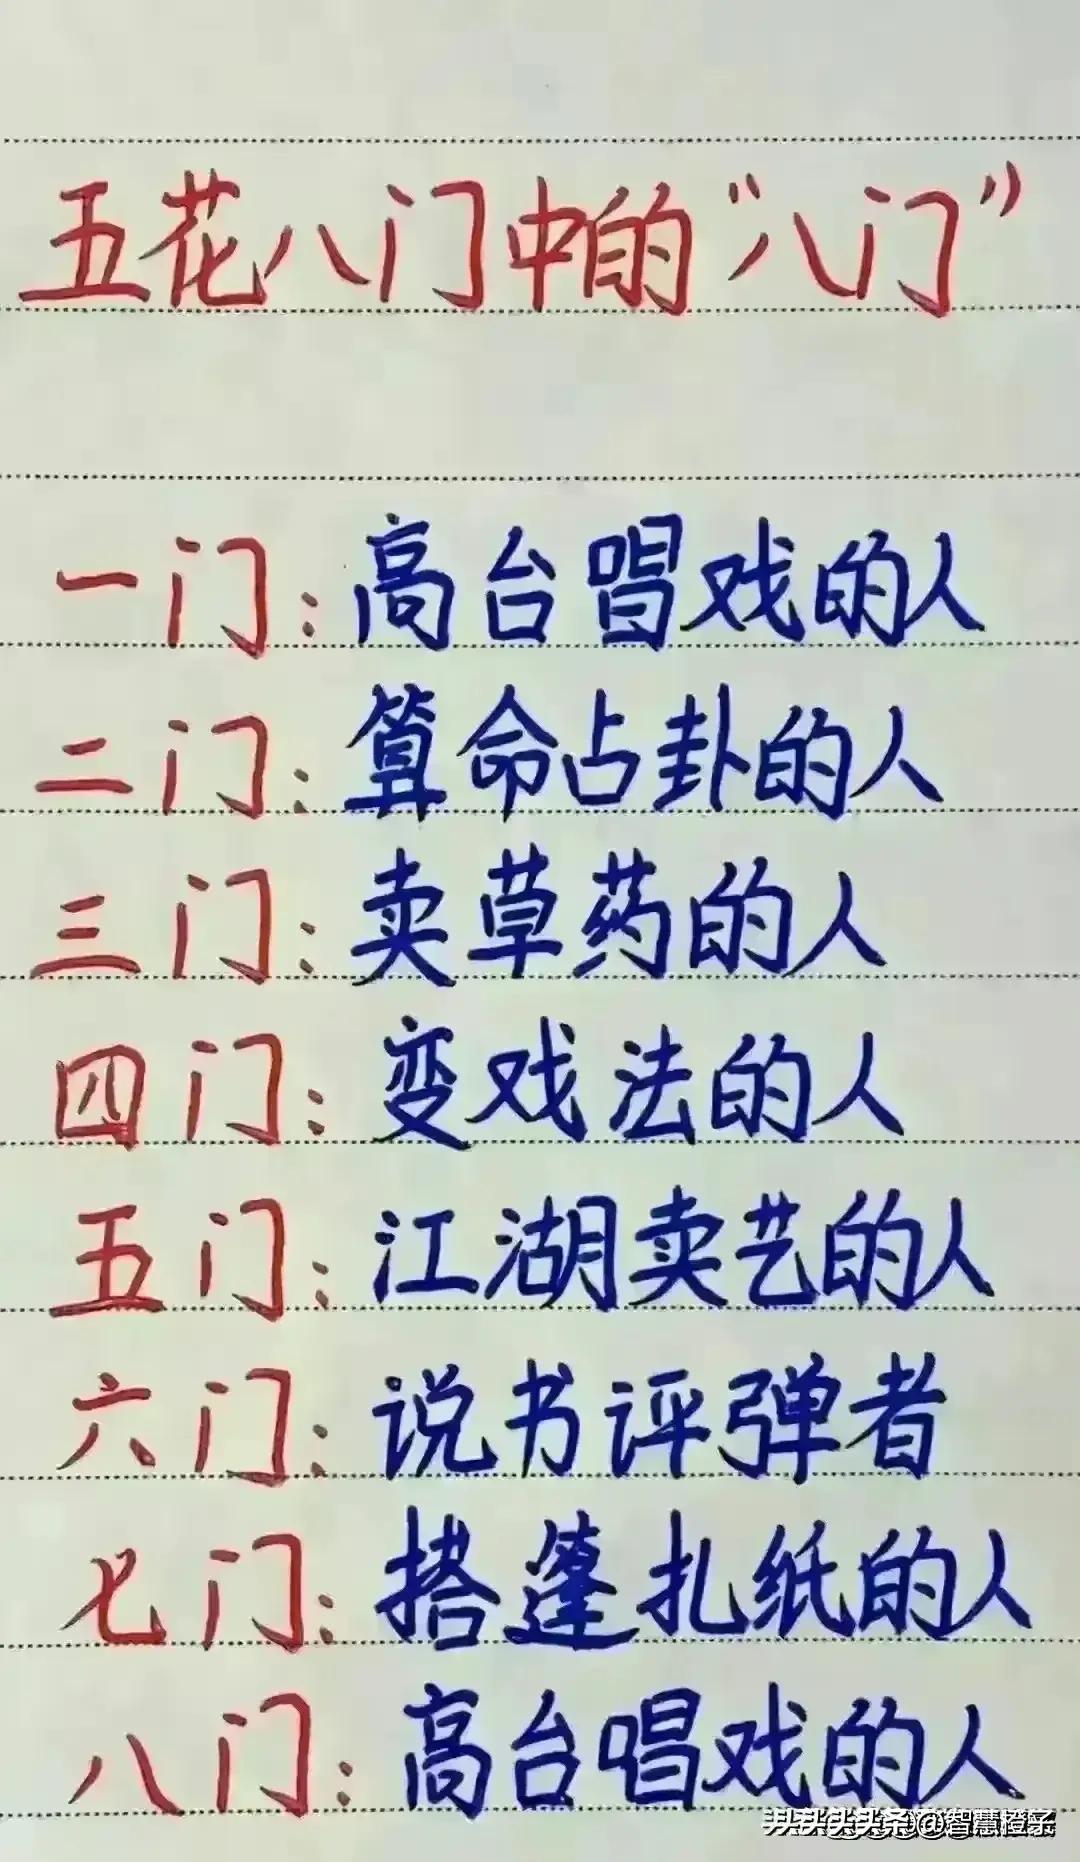 五花八门中的“八门”
一门：高台唱戏的人
二门：算命占卦的人
三门：卖草药的人
四门：变戏法的人
五门：江湖卖艺的人
六门：说书评弹者
七门：搭篷扎纸的人
八门：高台唱戏的人
头条@智慧橙子